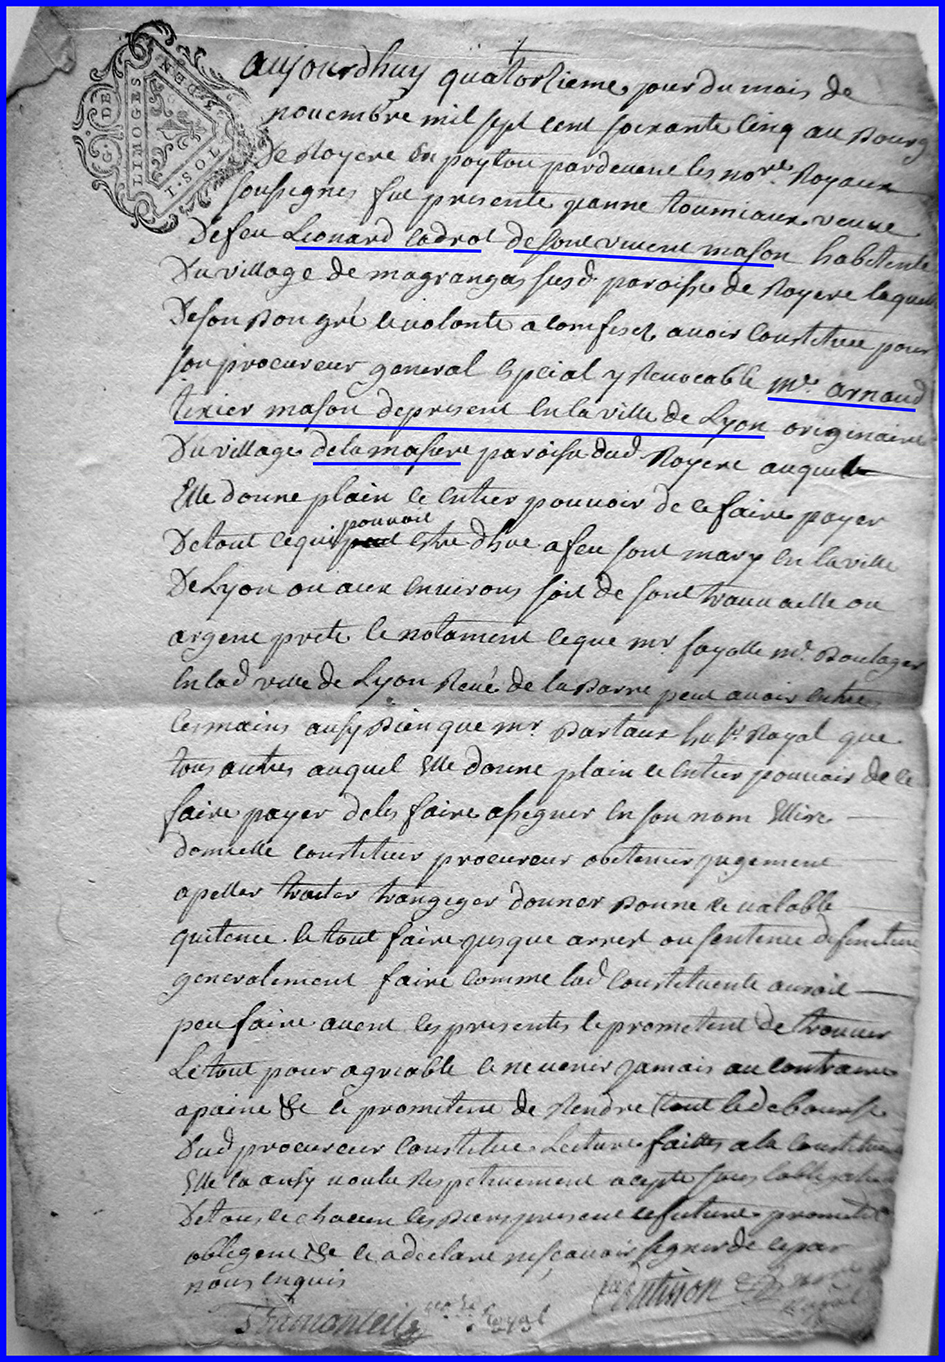 G. DE
LIMOGES
I. SOL
DEN
aujourdhuy quatorzieme jour du mois de
novembre mil sept cent soixante cinq au Bourg
de Royere en poytou pardevant les nore Royaux
soussignes fut presente jeanne toumiaux veuve
Defeu Leonard cadrol de sont vivent mason habitente
Du village de magranges susd paroisse de Royere laquelle
De son Bon gré le volonte a comfiset avoir constitue pour
son procureur general Special yrevocable mr arnaud
tixier mason depresent en la ville de Lyon originaire
Du village dela masiere paroisse dud Royere auquel
Elle donne plain le entier pouvoir de ce faire payer
pouvoit
De tout cequi estre dhue a feu sont mary en la ville
De Lyon ou aux environs soit de sont travaille ou
argent prete le notament ceque mr fayolle md Boulager
en lad ville de Lyon Rue de la Barre peut avoir entre
les mains ausy Bien que mr Bartaux Royal que
tous autres auquel Elle donne plain le entier pouvoir de ce
faire payer deles faire asegner en son nom Ellire
domicille constituer procureur obetenir jugement
apeller traiter trangeger donner Bonne le valable
quitence le tout faire jusque arrest ou sentence definitive
generalement faire comme lad constituente auroit
peu faire avent les presentes le prometent de trouver
Le tout pour agreable le ne venir jamais au contraire
apaine &c le prometent de Rendre tout le debourse
Dud procureur constitue Lecture faitte a la constituente
Elle la ausy voulu Respetivement acepte sous lobligation
De tous le chacun les Biens present le future promete
oblegent &c le a declare ne scavoir signer de ce par
nous enquis